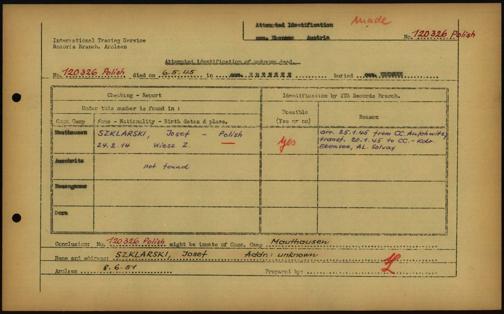 Attempted Identification
made
Ebensee Austria
No. 120326 Polish
International Tracing Service
Records Branch, Arolsen
Attempted identification of unknown dead.
No. 120326 Polish died on 6.5.45 in buried
Checking - Report
Identification by ITS Records Branch.
Under this number is found in :
Possible
(Yes or no)
Reason
Conc. Camp
Name - Nationality - Birth dates & place.
Mauthausen
SZKLARSKI, Josef - Polish
24.2.14 Wiesz Z.
yes
arr. 25.1.45 from CC. Auschwitz,
transf. 29.1.45 to CC.- Kdo.
Ebensee, AL. Solvay
Auschwitz
not found
Neuengamme
Dora
Conclusion: No. 120326 Polish might be inmate of Conc. Camp Mauthausen
Name and address: SZKLARSKI, Josef Addr.: unknown
Arolsen 8.6.51 Prepared by: